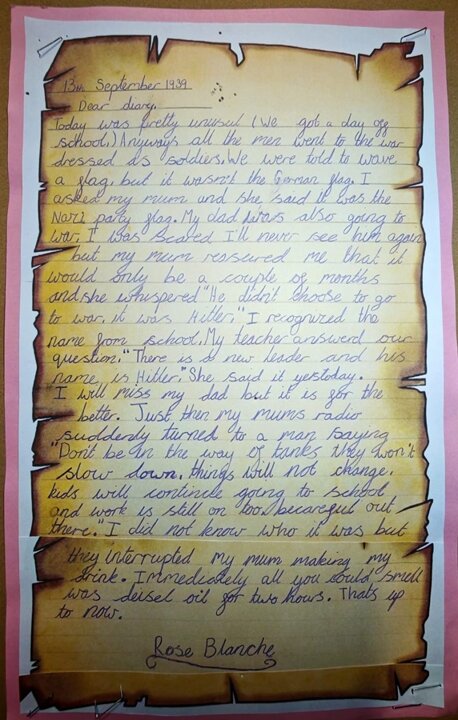 13th September 1939
Dear diary,
Today was pretty unusul (We got a day off
school.) Anyways all the men went to the war
dressed as soldiers. We were told to wave
a flag, but it wasn't the German flag. I
asked my mum and she said it was the
Nazi party flag. My dad was also going to
war. I was scared I'll never see him again
but my mum reasured me that it
would only be a couple of months
and she whispered "He didn't choose to go
to war, it was Hitler." I recognized the
name from school. My teacher answerd our
question. "There is a new leader and his
name is Hitler." She said it yestoday.
I will miss my dad but it is for the
better. Just then my mums radio
suddenly turned to a man saying
"Don't be in the way of tanks they won't
slow down, things will not change.
kids will continue going to school
and work is still on too, becareful out
there." I did not know who it was but
they interrupted my mum making my
drink. Immediately all you could smell
was deisel oil for two hours. Thats up
to now.
Rose Blanche